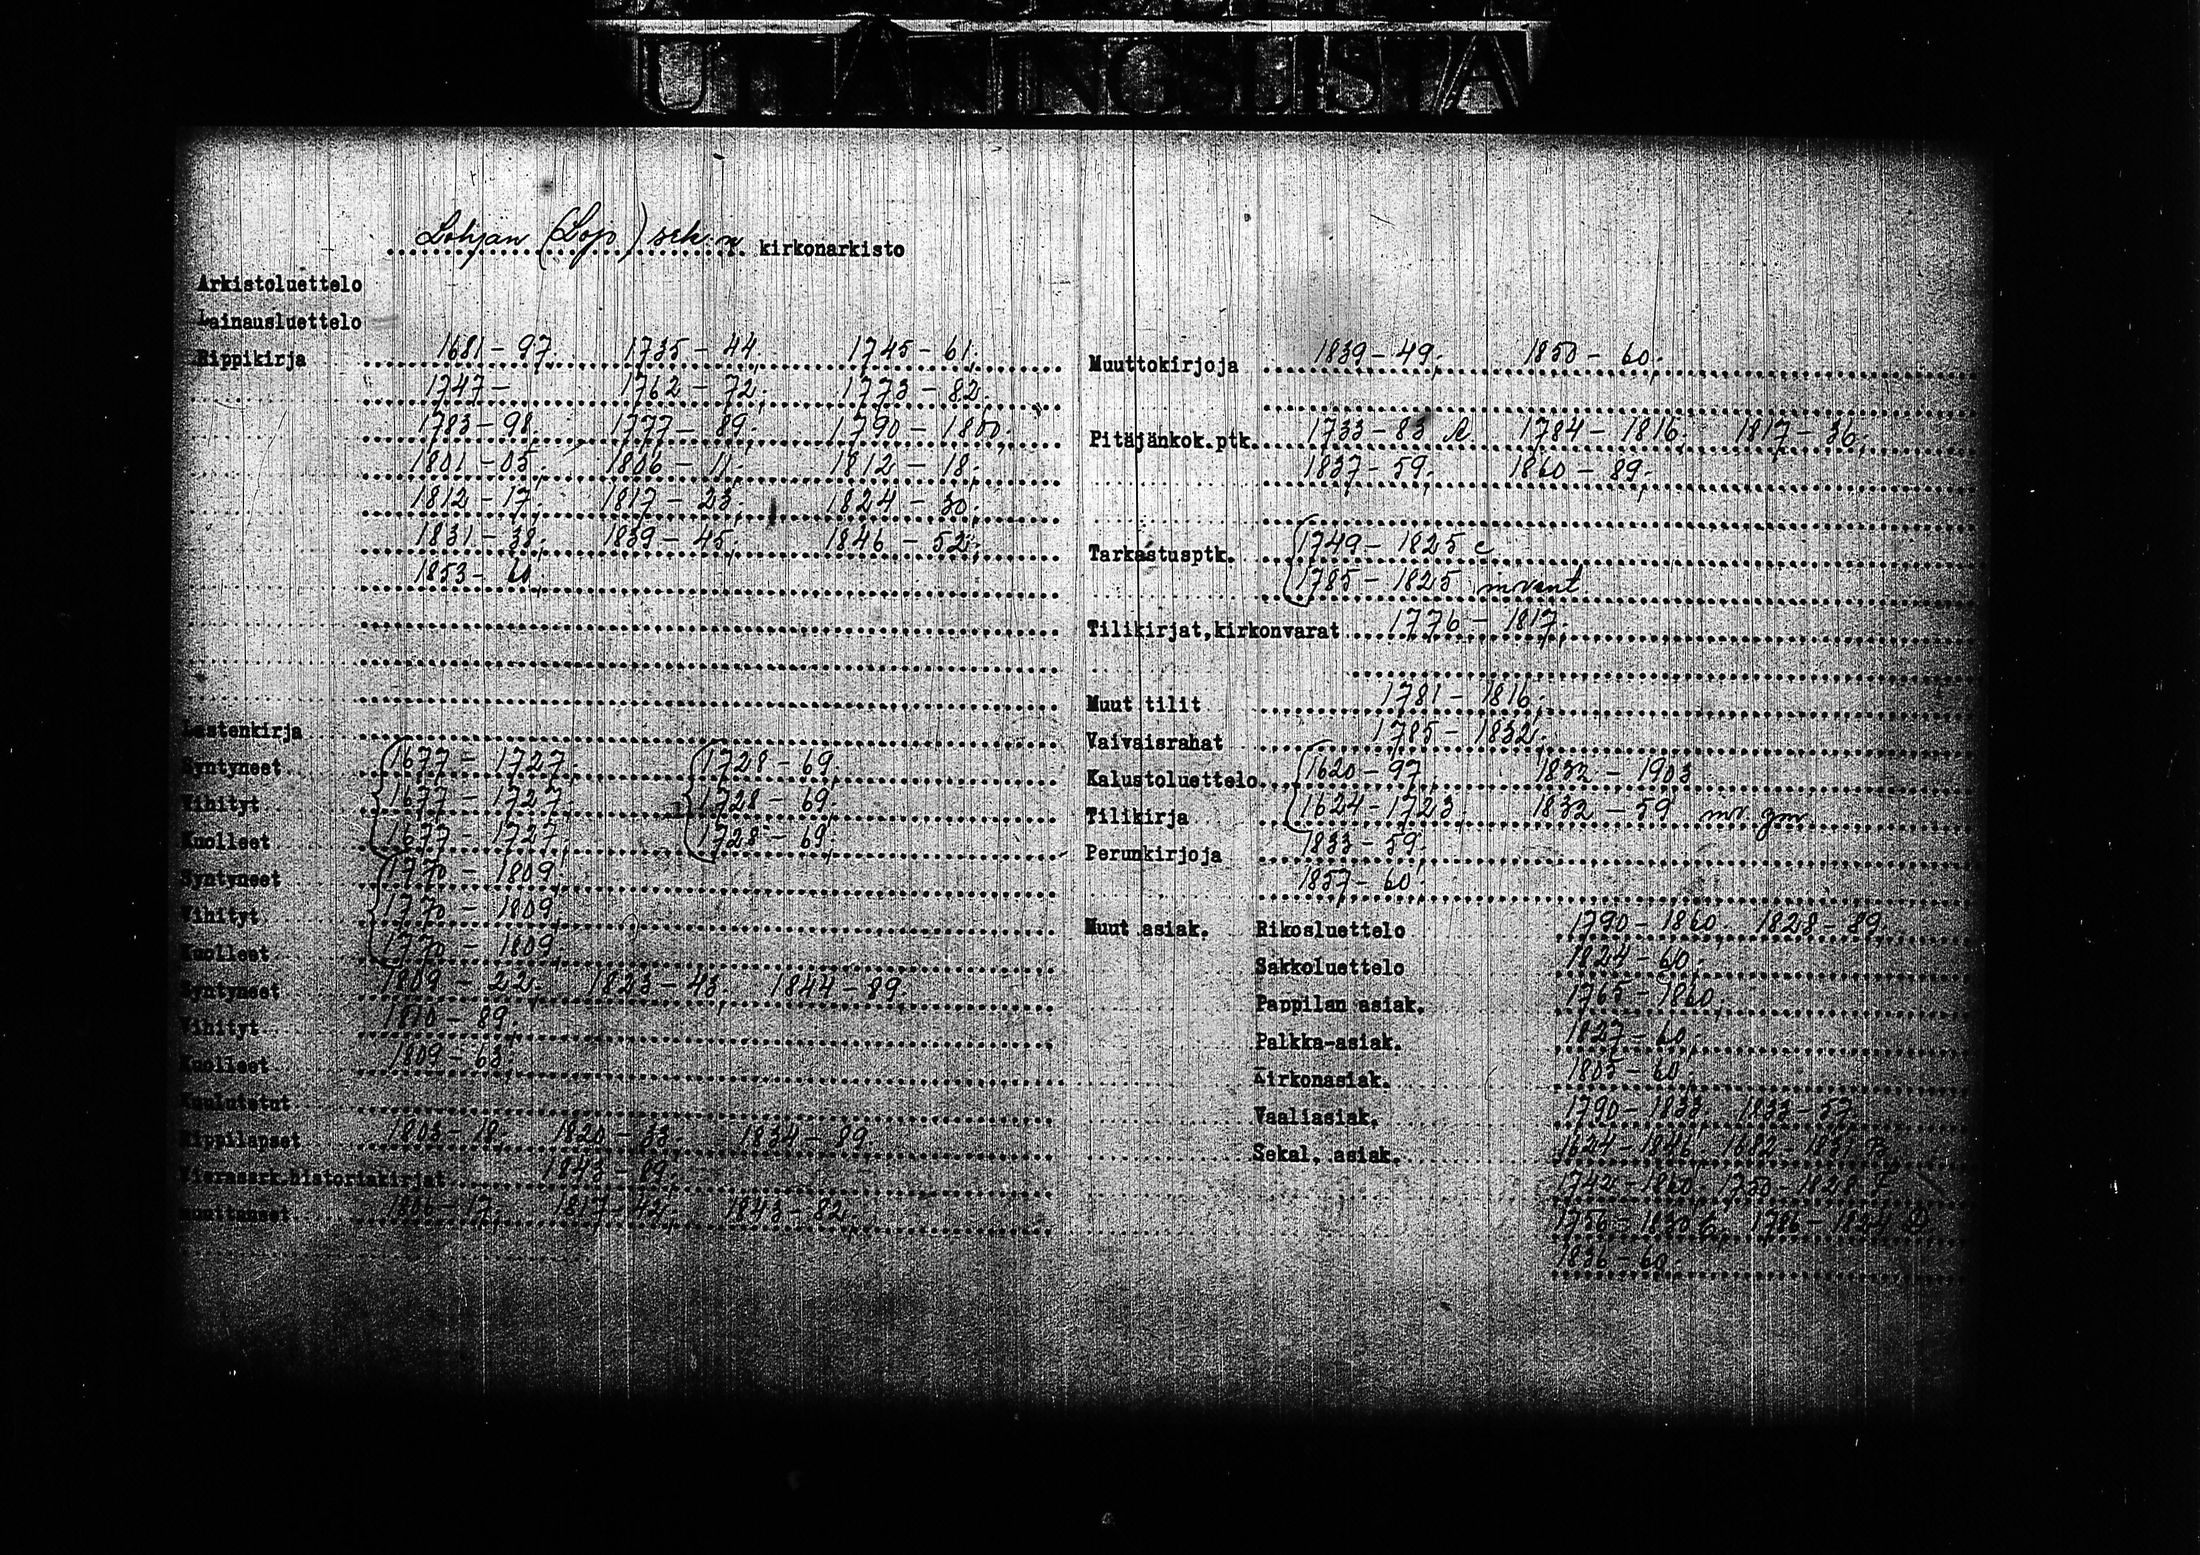 UTLÅNINGSLISTA
Lohjan (Lojo) srk:n kirkonarkisto
Arkistoluettelo
Lainausluettelo
Rippikirja 1681-97. 1735-44. 1745-61;
1747- 1762-72; 1773-82.
1783-98. 1777-89; 1790-1800;
1801-05; 1806-11; 1812-18;
1812-17; 1817-23; 1824-30;
1831-38; 1839-45; 1846-52;
1853-60.
Lastenkirja
Syntyneet 1677-1727; 1728-69;
Vihityt 1677-1727; 1728-69;
Kuolleet 1677-1727; 1728-69;
Syntyneet 1770-1809;
Vihityt 1770-1809;
Kuolleet 1770-1809;
Syntyneet 1809-22; 1823-43; 1844-89;
Vihityt 1810-89;
Kuolleet 1809-63;
Kuulutetut
Rippilapset 1803-18; 1820-33; 1834-89.
Vierassrk.historiakirjat 1843-89;
Muuttaneet 1806-17; 1817-42; 1843-82;
Muuttokirjoja 1839-49; 1850-60;
Pitäjänkok.ptk. 1733-83 1784-1816; 1817-36;
1837-59; 1860-89;
Tarkastusptk. 1749-1825 c
1785-1825
Tilikirjat,kirkonvarat 1776-1817;
Muut tilit 1781-1816;
Vaivaisrahat 1785-1832;
Kalustoluettelo 1620-97; 1832-1903
Tilikirja 1624-1723; 1832-59
Perunkirjoja 1833-59;
1857-60;
Muut asiak. Rikosluettelo 1790-1860; 1828-89;
Sakkoluettelo 1824-60;
Pappilan asiak. 1765-1860;
Palkka-asiak. 1827-60;
Kirkonasiak. 1805-60;
Vaaliasiak. 1790-1833; 1833-57
Sekal. asiak. 1624-1846;
1742-1860;
1836-60;